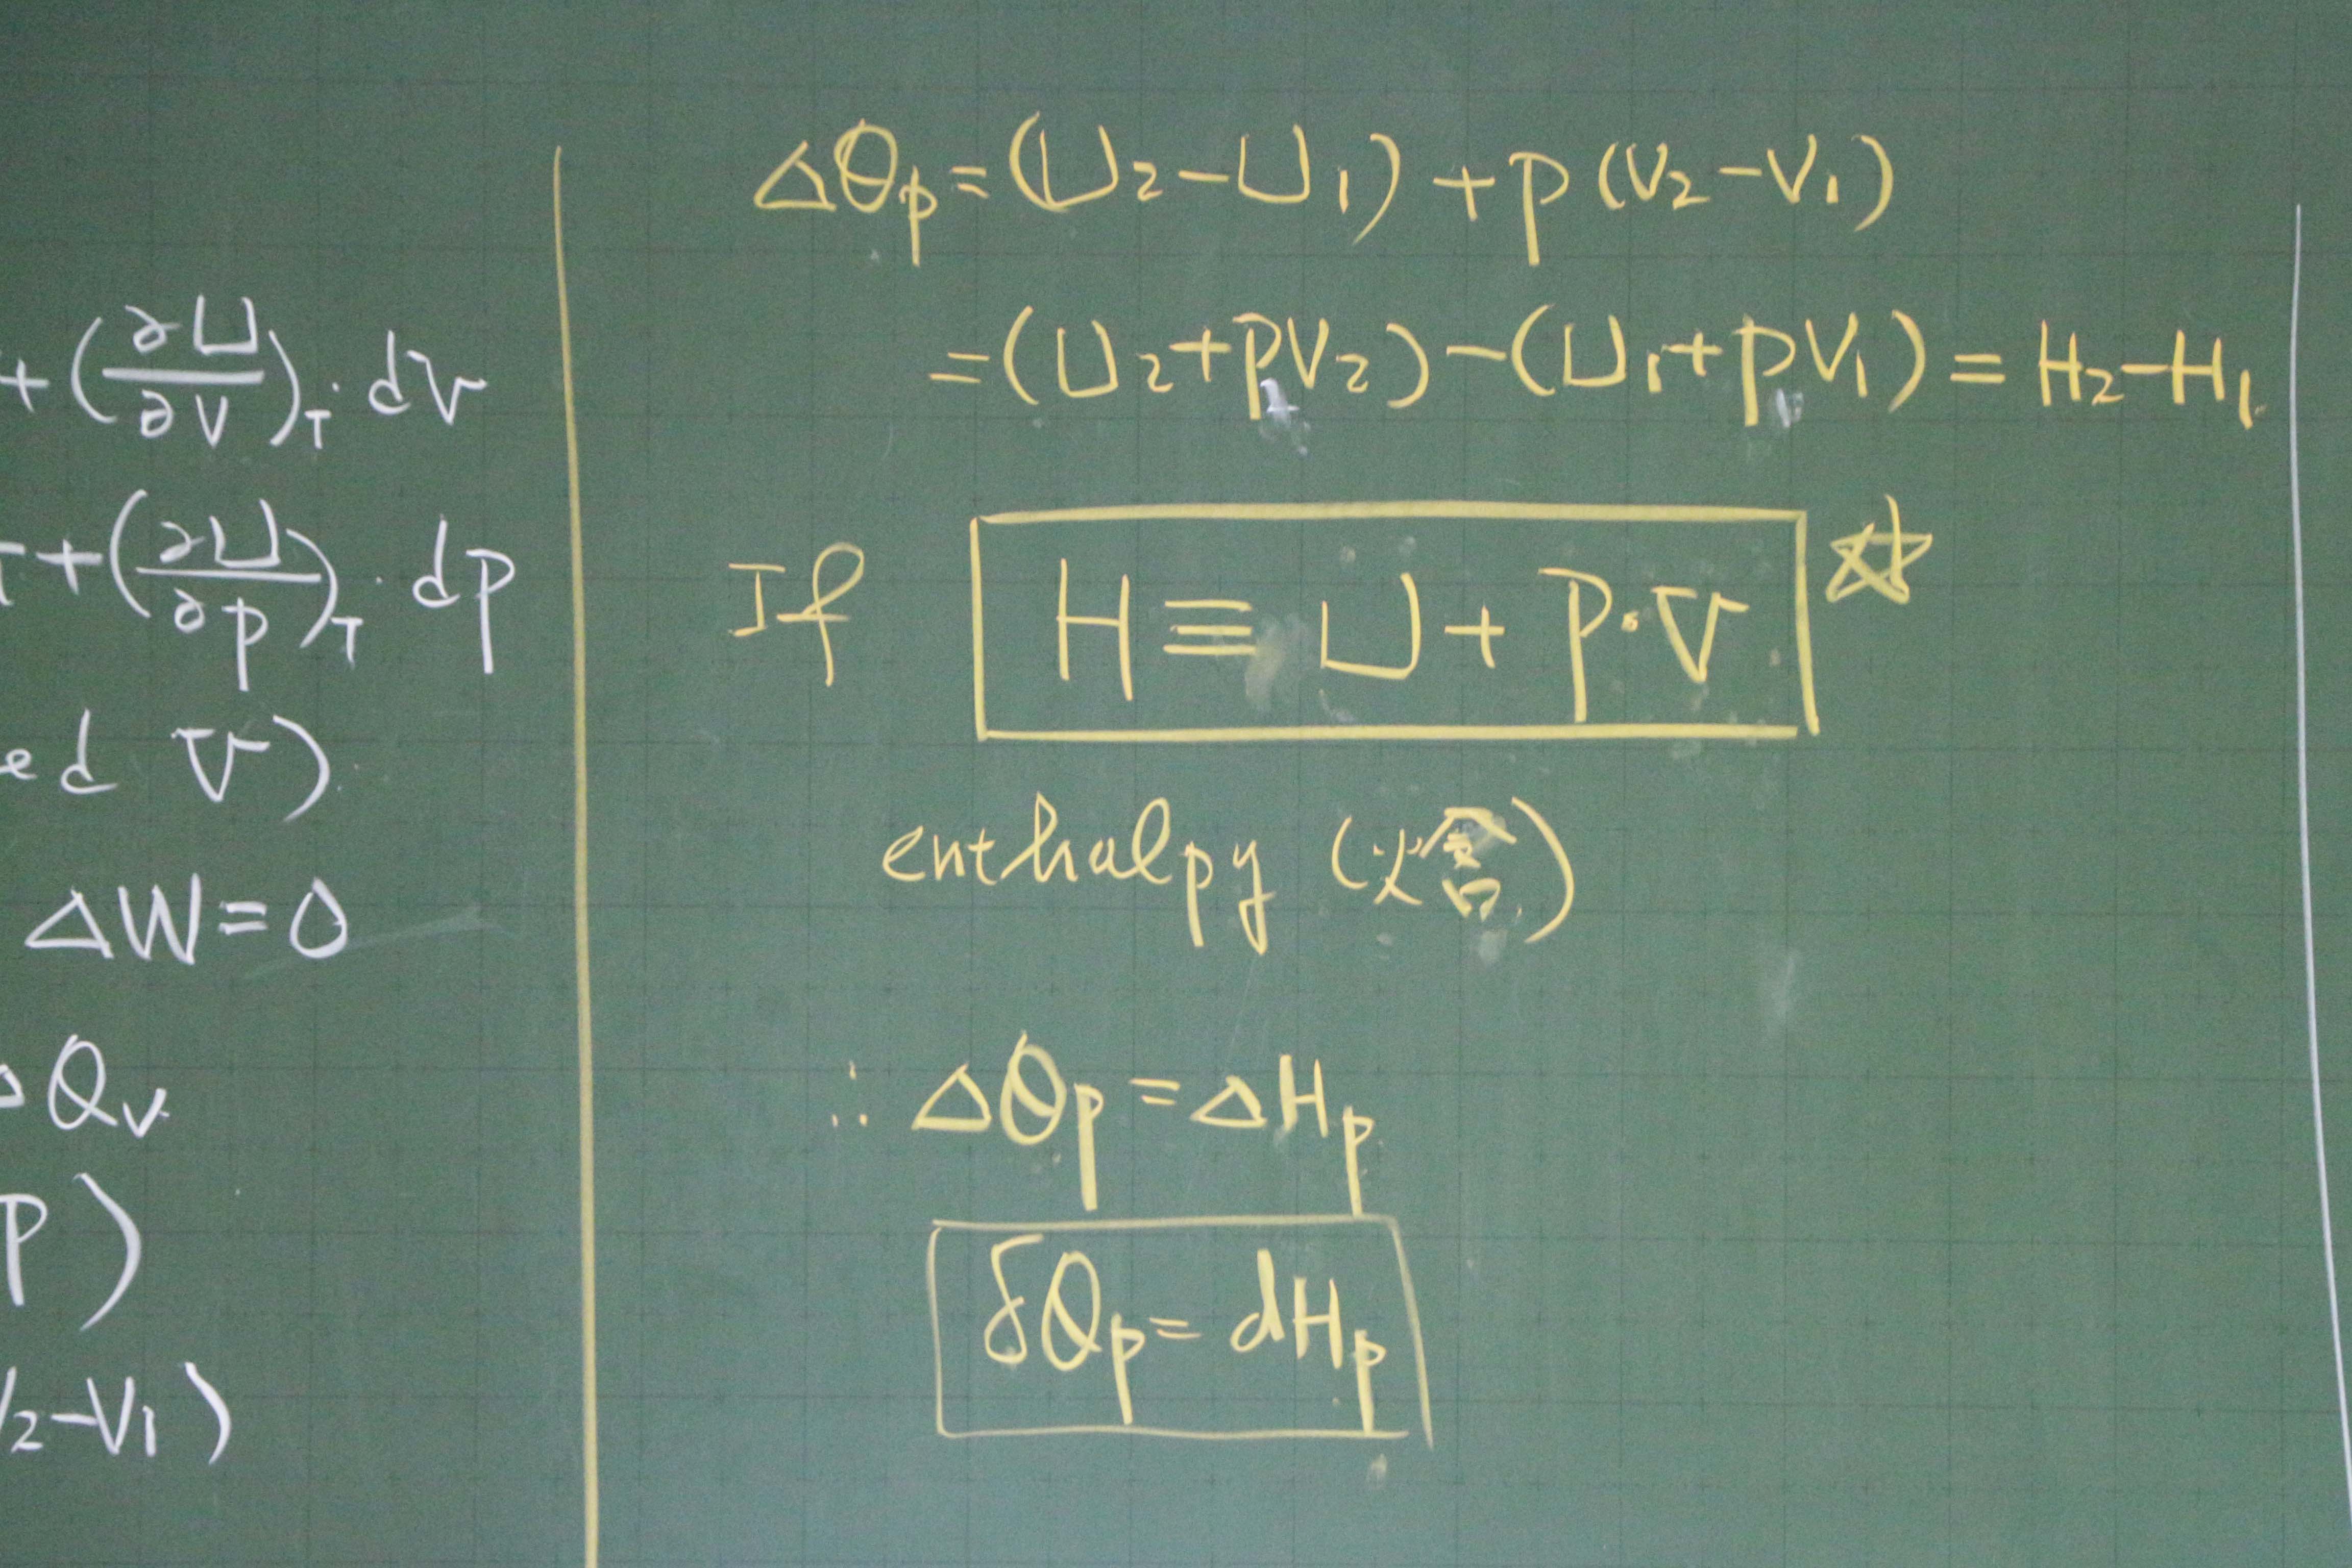 + (∂U/∂V)_T · dV
+ (∂U/∂p)_T · dp
ed V)
ΔW = 0
ΔQ_V
P)
V₂-V₁)
ΔQ_p = (U₂-U₁) + p (V₂-V₁)
= (U₂+pV₂) - (U₁+pV₁) = H₂-H₁
If H ≡ U + p·V ☆
enthalpy (焓)
∴ ΔQ_p = ΔH_p
δQ_p = dH_p